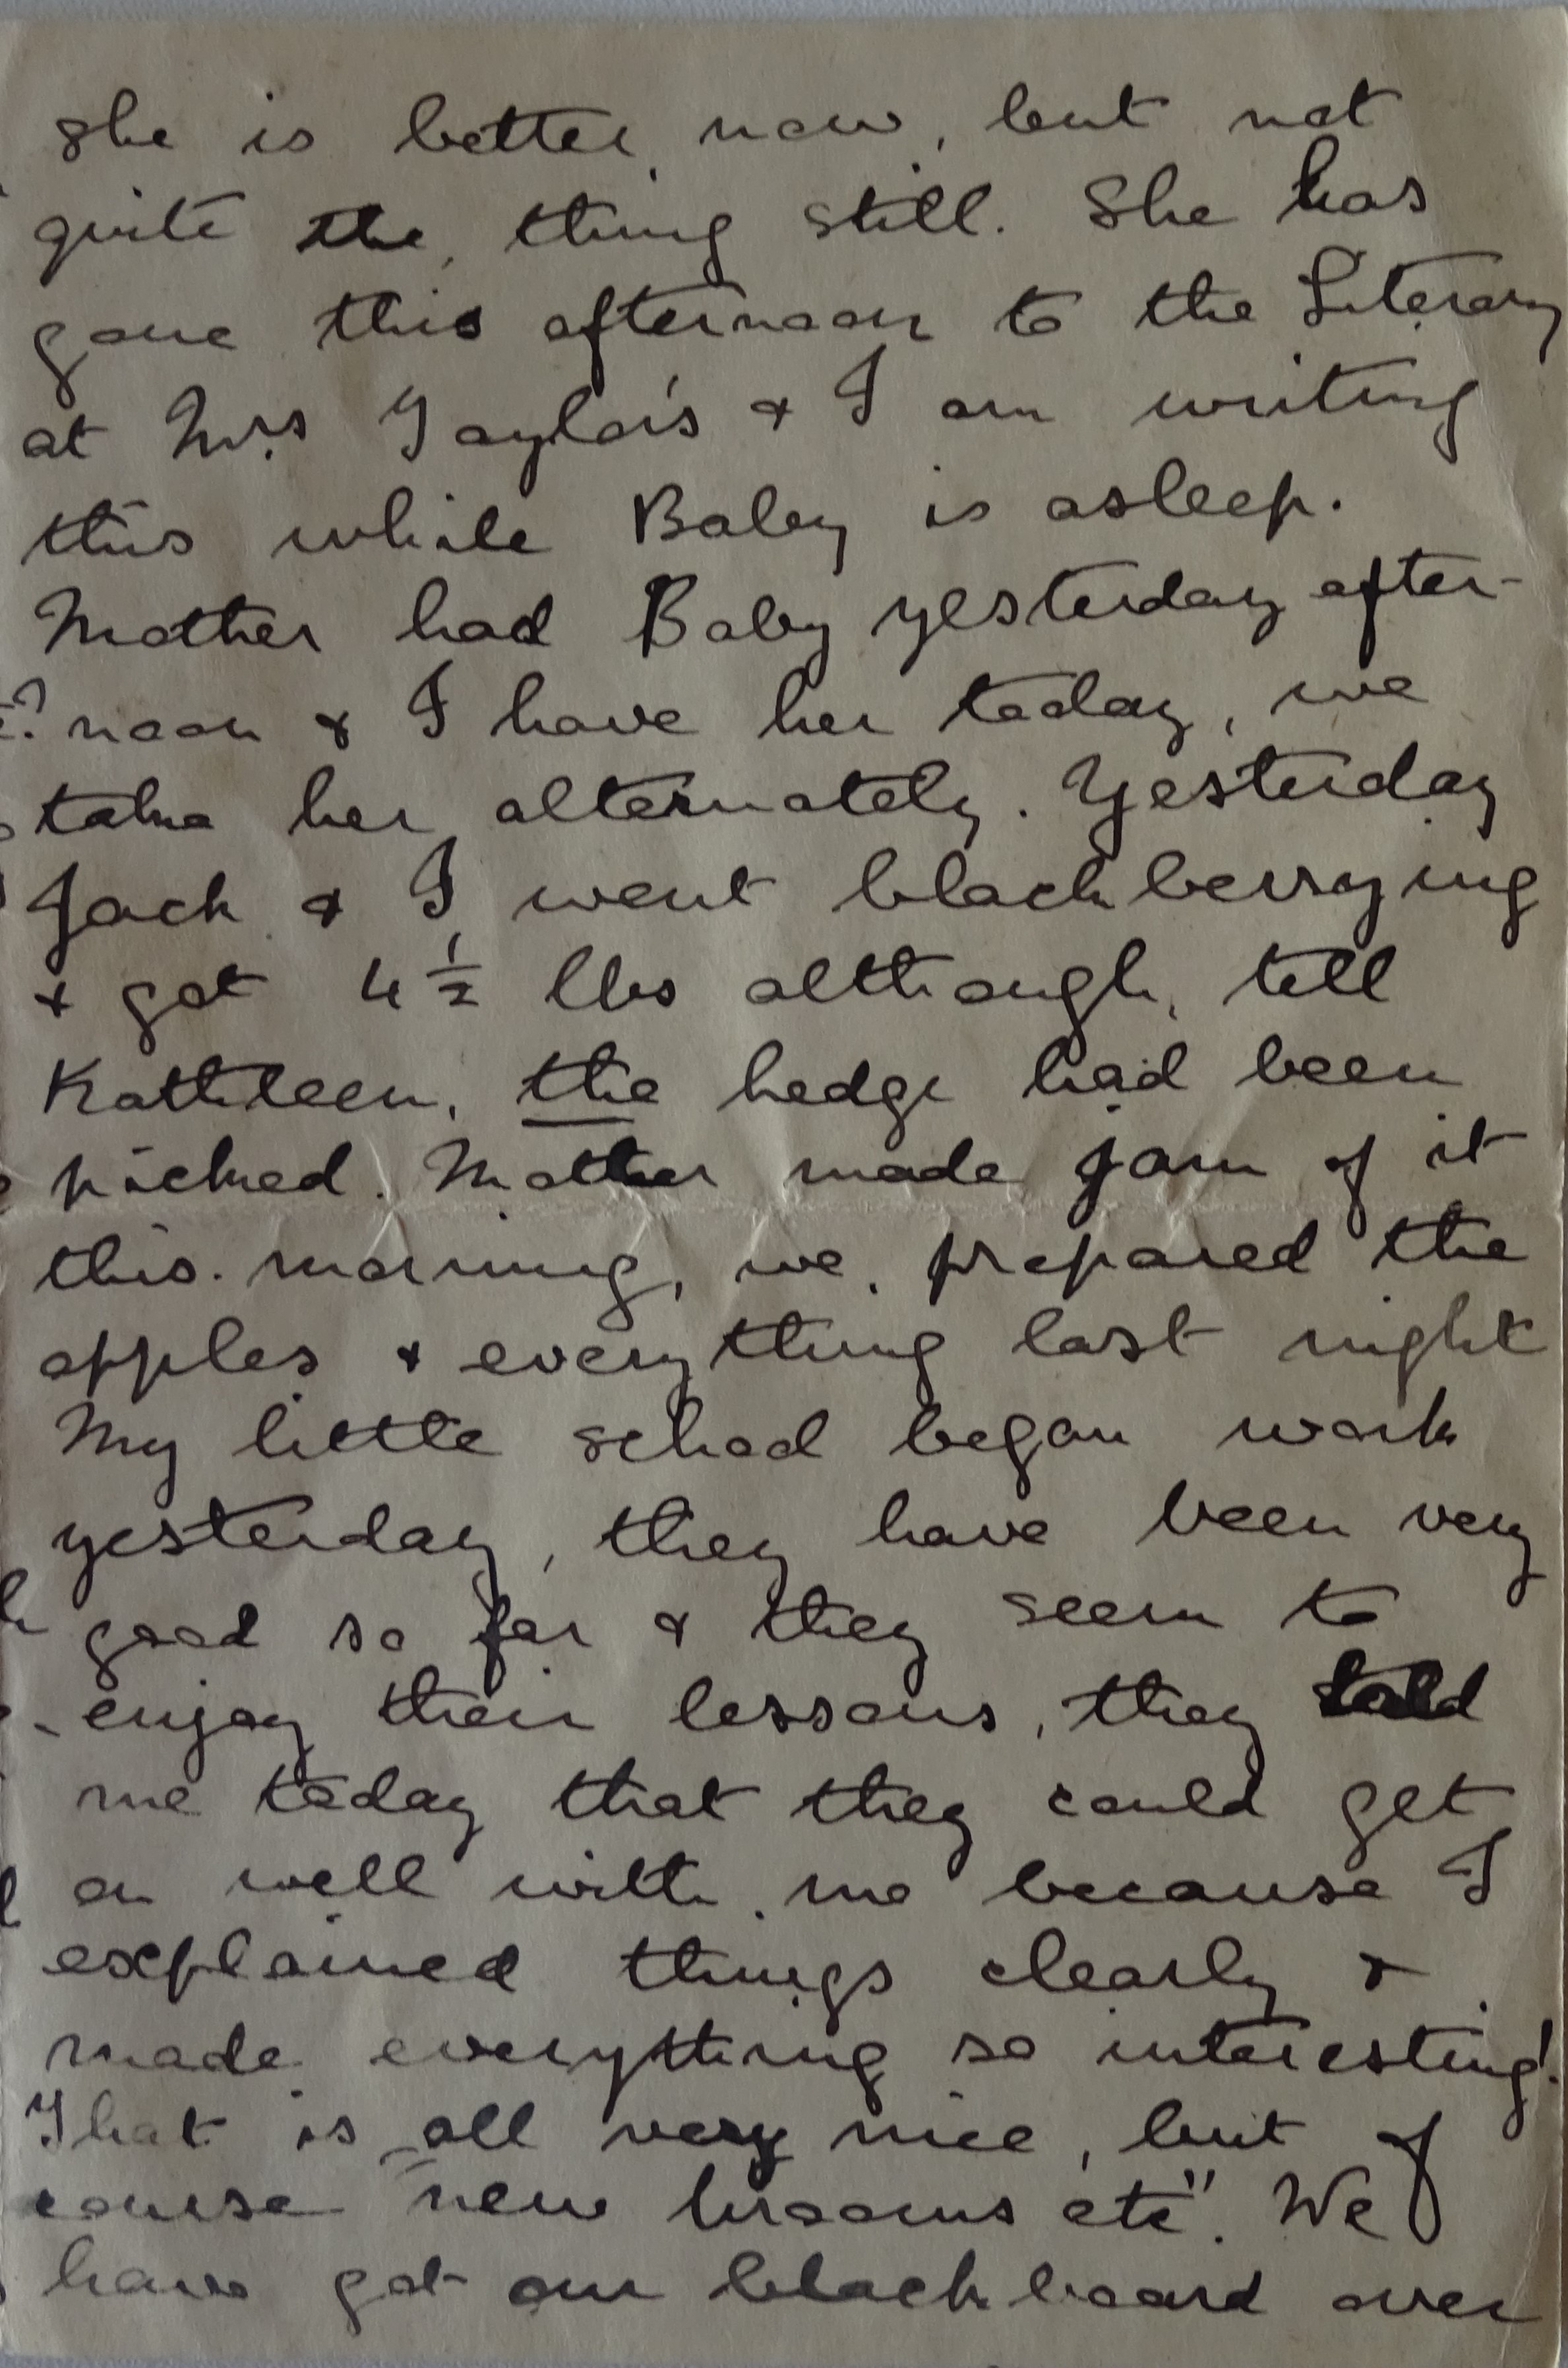 She is better now, but not
quite the thing still. She has
gone this afternoon to the Literary
at Mrs Taylor's & I am writing
this while Baby is asleep.
Mother had Baby yesterday after-
noon & I have her today, we
take her alternately. Yesterday
Jack & I went blackberrying
& got 4 1/2 lbs although, tell
Kathleen, the hedge had been
picked. Mother made jam of it
this morning, we prepared the
apples & everything last night
My little school began work
yesterday, they have been very
good so far & they seem to
enjoy their lessons, they told
me today that they could get
on well with me because I
explained things clearly &
made everything so interesting!
That is all very nice, but of
course "new brooms etc". We
have got our blackboard over